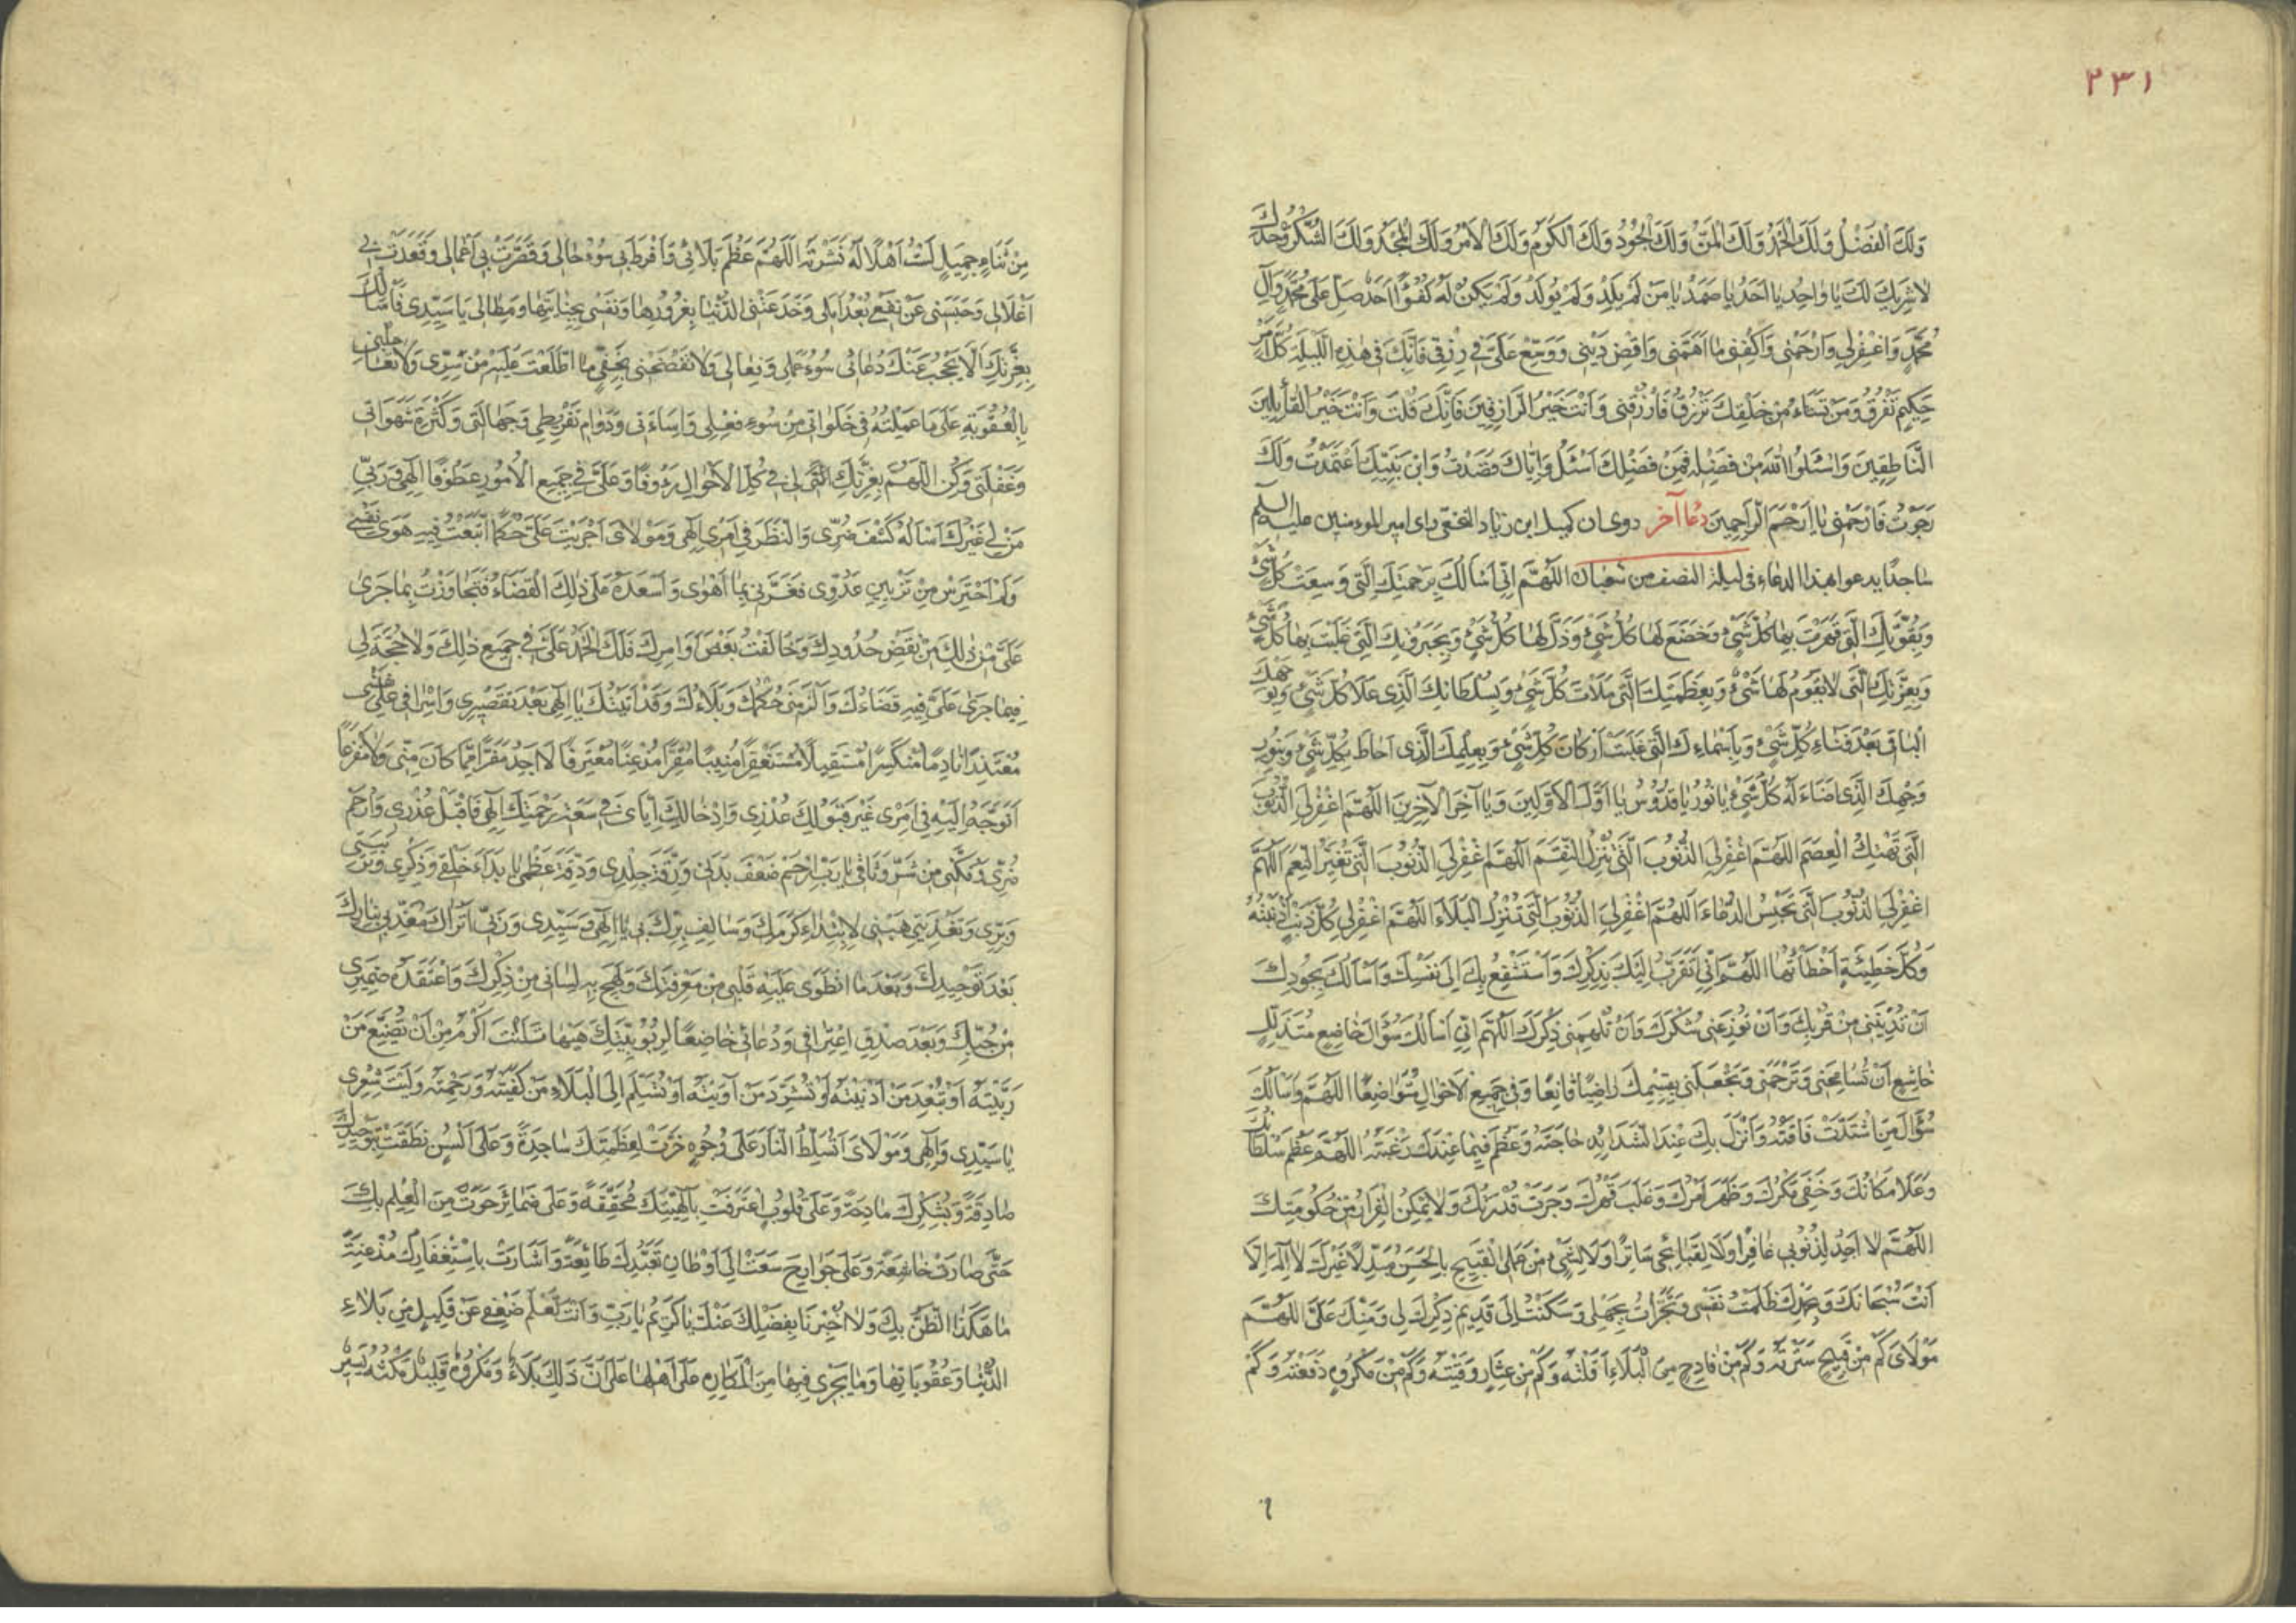 ٢٣١
وَلَكَ الْفَضْلُ وَلَكَ الْحَمْدُ وَلَكَ الْمَنُّ وَلَكَ الْجُودُ وَلَكَ الْكَرَمُ وَلَكَ الْاَمْرُ وَلَكَ الْمَجْدُ وَلَكَ الشُّكْرُ وَحْدَكَ
لا شَرِيكَ لَكَ يا واحِدُ يا اَحَدُ يا صَمَدُ يا مَنْ لَمْ يَلِدْ وَلَمْ يُولَدْ وَلَمْ يَكُنْ لَهُ كُفُوًا اَحَدٌ صَلِّ عَلى مُحَمَّدٍ وَآلِ
مُحَمَّدٍ وَاغْفِرْلي وَارْحَمْنى وَاكْفِنى ما اَهَمَّنى وَاقْضِ دَيْنى وَوَسِّعْ عَلَىَّ في رِزْقى فَاِنَّكَ فى هٰذِهِ اللَّيْلَةِ كُلَّ اَمْرٍ
حَكِيمٍ تَفْرُقُ وَمَنْ تَشَاءُ مِنْ خَلْقِكَ تَرْزُقُ فَارْزُقْنى وَاَنْتَ خَيْرُ الرّازِقِينَ فَاِنَّكَ قُلْتَ وَاَنْتَ خَيْرُ الْقائِلِينَ
النّاطِقِينَ وَاسْئَلُوا اللهَ مِنْ فَضْلِهِ فَمِنْ فَضْلِكَ اَسْئَلُ وَاِيّاكَ قَصَدْتُ وَابْنَ نَبِيِّكَ اعْتَمَدْتُ وَلَكَ
رَجَوْتُ فَارْحَمْنى يا اَرْحَمَ الرّاحِمِينَ دُعا آخر روى ان كميل ابن زياد النخعى راى امير المومنين عليه السلم
ساجدًا يدعو بهذا الدعاء فى ليلة النصف من شعبان اَللّهُمَّ اِنّى اَسْاَلُكَ بِرَحْمَتِكَ الَّتى وَسِعَتْ كُلَّ شَىْءٍ
وَبِقُوَّتِكَ الَّتى قَهَرْتَ بِها كُلَّ شَىْءٍ وَخَضَعَ لَها كُلُّ شَىْءٍ وَذَلَّ لَها كُلُّ شَىْءٍ وَبِجَبَرُوتِكَ الَّتى غَلَبْتَ بِها كُلَّ شَىْءٍ
وَبِعِزَّتِكَ الَّتى لا يَقُومُ لَها شَىْءٌ وَبِعَظَمَتِكَ الَّتى مَلَأَتْ كُلَّ شَىْءٍ وَبِسُلْطانِكَ الَّذى عَلا كُلَّ شَىْءٍ وَبِوَجْهِكَ
الْباقى بَعْدَ فَنَاءِ كُلِّ شَىْءٍ وَبِاَسْماءِكَ الَّتى غَلَبَتْ اَرْكانَ كُلِّ شَىْءٍ وَبِعِلْمِكَ الَّذى اَحاطَ بِكُلِّ شَىْءٍ وَبِنُورِ
وَجْهِكَ الَّذى اَضَاءَ لَهُ كُلُّ شَىْءٍ يا نُورُ يا قُدُّوسُ يا اَوَّلَ الْاَوَّلِينَ وَيا آخِرَ الْآخِرِينَ اَللّهُمَّ اغْفِرْلِىَ الذُّنُوبَ
الَّتى تَهْتِكُ الْعِصَمَ اَللّهُمَّ اغْفِرْلِىَ الذُّنُوبَ الَّتى تُنْزِلُ النِّقَمَ اَللّهُمَّ اغْفِرْلِىَ الذُّنُوبَ الَّتى تُغَيِّرُ النِّعَمَ اَللّهُمَّ
اغْفِرْلِىَ الذُّنُوبَ الَّتى تَحْبِسُ الدُّعَاءَ اَللّهُمَّ اغْفِرْلِىَ الذُّنُوبَ الَّتى تُنْزِلُ الْبَلَاءَ اَللّهُمَّ اغْفِرْلى كُلَّ ذَنْبٍ اَذْنَبْتُهُ
وَكُلَّ خَطِيئَةٍ اَخْطَأْتُها اَللّهُمَّ اِنّى اَتَقَرَّبُ اِلَيْكَ بِذِكْرِكَ وَاَسْتَشْفِعُ بِكَ اِلى نَفْسِكَ وَاَسْاَلُكَ بِجُودِكَ
اَنْ تُدْنِيَنى مِنْ قُرْبِكَ وَاَنْ تُوزِعَنى شُكْرَكَ وَاَنْ تُلْهِمَنى ذِكْرَكَ اَللّهُمَّ اِنّى اَسْاَلُكَ سُؤالَ خاضِعٍ مُتَذَلِّلٍ
خاشِعٍ اَنْ تُسامِحَنى وَتَرْحَمَنى وَتَجْعَلَنى بِقِسْمِكَ راضِيًا قانِعًا وَفى جَمِيعِ الْاَحْوالِ مُتَواضِعًا اَللّهُمَّ وَاَسْاَلُكَ
سُؤالَ مَنِ اشْتَدَّتْ فاقَتُهُ وَاَنْزَلَ بِكَ عِنْدَ الشَّدايِدِ حاجَتَهُ وَعَظُمَ فِيما عِنْدَكَ رَغْبَتُهُ اَللّهُمَّ عَظُمَ سُلْطانُكَ
وَعَلا مَكانُكَ وَخَفِىَ مَكْرُكَ وَظَهَرَ اَمْرُكَ وَغَلَبَ قَهْرُكَ وَجَرَتْ قُدْرَتُكَ وَلا يُمْكِنُ الْفِرارُ مِنْ حُكُومَتِكَ
اَللّهُمَّ لا اَجِدُ لِذُنُوبى غافِرًا وَلا لِقَبائِحى ساتِرًا وَلا لِشَىْءٍ مِنْ عَمَلِىَ الْقَبِيحِ بِالْحَسَنِ مُبَدِّلًا غَيْرَكَ لا اِلهَ اِلّا
اَنْتَ سُبْحانَكَ وَبِحَمْدِكَ ظَلَمْتُ نَفْسى وَتَجَرَّأْتُ بِجَهْلى وَسَكَنْتُ اِلى قَدِيمِ ذِكْرِكَ لى وَمَنِّكَ عَلَىَّ اَللّهُمَّ
مَوْلاىَ كَمْ مِنْ قَبِيحٍ سَتَرْتَهُ وَكَمْ مِنْ فادِحٍ مِنَ الْبَلَاءِ اَقَلْتَهُ وَكَمْ مِنْ عِثارٍ وَقَيْتَهُ وَكَمْ مِنْ مَكْرُوهٍ دَفَعْتَهُ وَكَمْ
مِنْ ثَنَاءٍ جَمِيلٍ لَسْتُ اَهْلًا لَهُ نَشَرْتَهُ اَللّهُمَّ عَظُمَ بَلائى وَاَفْرَطَ بى سُوءُ حالى وَقَصُرَتْ بى اَعْمالى وَقَعَدَتْ بى
اَغْلالى وَحَبَسَنى عَنْ نَفْعى بُعْدُ اَمَلى وَخَدَعَتْنِى الدُّنْيا بِغُرُورِها وَنَفْسى بِجِنايَتِها وَمِطالى يا سَيِّدى فَاَسْاَلُكَ
بِعِزَّتِكَ اَلّا يَحْجُبَ عَنْكَ دُعائى سُوءُ عَمَلى وَفِعالى وَلا تَفْضَحْنى بِخَفِىِّ ما اطَّلَعْتَ عَلَيْهِ مِنْ سِرّى وَلا تُعاجِلْنى
بِالْعُقُوبَةِ عَلى ما عَمِلْتُهُ فى خَلَواتى مِنْ سُوءِ فِعْلى وَاِسَاءَتى وَدَوامِ تَفْرِيطى وَجَهالَتى وَكَثْرَةِ شَهَواتى
وَغَفْلَتى وَكُنِ اللّهُمَّ بِعِزَّتِكَ الَّتى لى في كُلِّ الْاَحْوالِ رَءُوفًا وَعَلَىَّ في جَمِيعِ الْاُمُورِ عَطُوفًا اِلهى وَرَبّى
مَنْ لى غَيْرُكَ اَسْاَلُهُ كَشْفَ ضُرّى وَالنَّظَرَ فى اَمْرى اِلهى وَمَوْلاىَ اَجْرَيْتَ عَلَىَّ حُكْمًا اتَّبَعْتُ فِيهِ هَوى نَفْسى
وَلَمْ اَحْتَرِسْ مِنْ تَزْيِينِ عَدُوّى فَغَرَّنى بِما اَهْوى وَاَسْعَدَهُ عَلى ذلِكَ الْقَضَاءُ فَتَجاوَزْتُ بِما جَرى
عَلَىَّ مِنْ ذلِكَ مِنْ نَقْضِ حُدُودِكَ وَخالَفْتُ بَعْضَ اَوامِرِكَ فَلَكَ الْحَمْدُ عَلَىَّ فى جَمِيعِ ذلِكَ وَلا حُجَّةَ لى
فِيما جَرى عَلَىَّ فِيهِ قَضَاءُكَ وَاَلْزَمَنى حُكْمُكَ وَبَلاءُكَ وَقَدْ اَتَيْتُكَ يا اِلهى بَعْدَ تَقْصِيرى وَاِسْرافى عَلى نَفْسى
مُعْتَذِرًا نادِمًا مُنْكَسِرًا مُسْتَقِيلًا مُسْتَغْفِرًا مُنِيبًا مُقِرًّا مُذْعِنًا مُعْتَرِفًا لا اَجِدُ مَفَرًّا مِمّا كانَ مِنّى وَلا مَفْزَعًا
اَتَوَجَّهُ اِلَيْهِ فى اَمْرى غَيْرَ قَبُولِكَ عُذْرى وَاِدْخالِكَ اِيّاىَ فى سَعَةِ رَحْمَتِكَ اِلهى فَاقْبَلْ عُذْرى وَارْحَمْ
ضُرّى وَفُكَّنى مِنْ شَدِّ وَثاقى يا رَبِّ ارْحَمْ ضَعْفَ بَدَنى وَرِقَّةَ جِلْدى وَدِقَّةَ عَظْمى يا مَنْ بَدَاَ خَلْقى وَذِكْرى وَتَرْبِيَتى
وَبِرّى وَتَغْذِيَتى هَبْنى لِابْتِدَاءِ كَرَمِكَ وَسالِفِ بِرِّكَ بى يا اِلهى وَسَيِّدى وَرَبّى اَتُراكَ مُعَذِّبى بِنارِكَ
بَعْدَ تَوْحِيدِكَ وَبَعْدَ مَا انْطَوى عَلَيْهِ قَلْبى مِنْ مَعْرِفَتِكَ وَلَهِجَ بِهِ لِسانى مِنْ ذِكْرِكَ وَاعْتَقَدَهُ ضَمِيرى
مِنْ حُبِّكَ وَبَعْدَ صِدْقِ اعْتِرافى وَدُعائى خاضِعًا لِرُبُوبِيَّتِكَ هَيْهاتَ اَنْتَ اَكْرَمُ مِنْ اَنْ تُضَيِّعَ مَنْ
رَبَّيْتَهُ اَوْ تُبْعِدَ مَنْ اَدْنَيْتَهُ اَوْ تُشَرِّدَ مَنْ آوَيْتَهُ اَوْ تُسَلِّمَ اِلَى الْبَلَاءِ مَنْ كَفَيْتَهُ وَرَحِمْتَهُ وَلَيْتَ شِعْرى
يا سَيِّدى وَاِلهى وَمَوْلاىَ اَتُسَلِّطُ النّارَ عَلى وُجُوهٍ خَرَّتْ لِعَظَمَتِكَ ساجِدَةً وَعَلى اَلْسُنٍ نَطَقَتْ بِتَوْحِيدِكَ
صادِقَةً وَبِشُكْرِكَ مادِحَةً وَعَلى قُلُوبٍ اعْتَرَفَتْ بِاِلهِيَّتِكَ مُحَقِّقَةً وَعَلى ضَمائِرَ حَوَتْ مِنَ الْعِلْمِ بِكَ
حَتّى صارَتْ خاشِعَةً وَعَلى جَوارِحَ سَعَتْ اِلى اَوْطانِ تَعَبُّدِكَ طائِعَةً وَاَشارَتْ بِاسْتِغْفارِكَ مُذْعِنَةً
ما هكَذَا الظَّنُّ بِكَ وَلا اُخْبِرْنا بِفَضْلِكَ عَنْكَ يا كَرِيمُ يا رَبِّ وَاَنْتَ تَعْلَمُ ضَعْفى عَنْ قَلِيلٍ مِنْ بَلَاءِ
الدُّنْيا وَعُقُوباتِها وَما يَجْرى فِيها مِنَ الْمَكارِهِ عَلى اَهْلِها عَلى اَنَّ ذلِكَ بَلَاءٌ وَمَكْرُوهٌ قَلِيلٌ مَكْثُهُ يَسِيرٌ